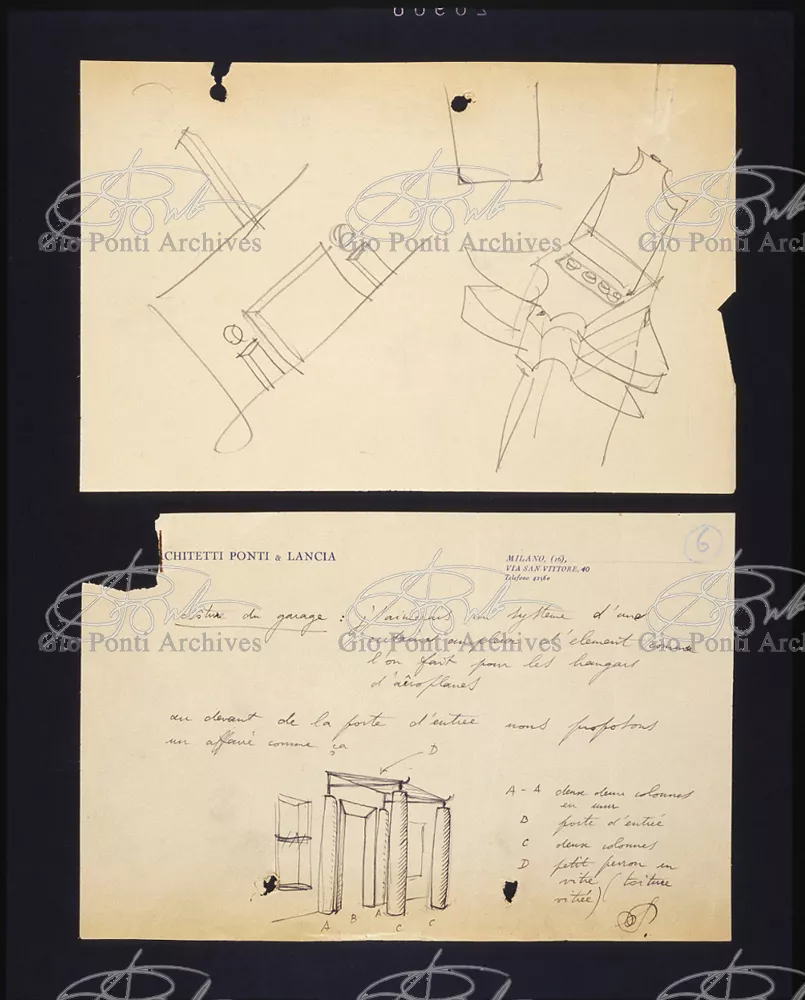 00902
ARCHITETTI PONTI & LANCIA
MILANO, (16),
VIA SAN VITTORE, 40
Telefono 42180
6
du garage : j'aimerais un système d'une
d'element comme
l'on fait pour les hangars
d'aëroplanes
au devant de la porte d'entrée nous proposons
un affairé comme ça
D
A - A deux demi colonnes
en mur
B porte d'entrée
C deux colonnes
D petit perron en
vitre (toiture
vitrée)
A B A C C
Gio Ponti Archives
Gio Ponti Archives
Gio Ponti Archives
Gio Ponti Archives
Gio Ponti Archives
Gio Ponti Archives